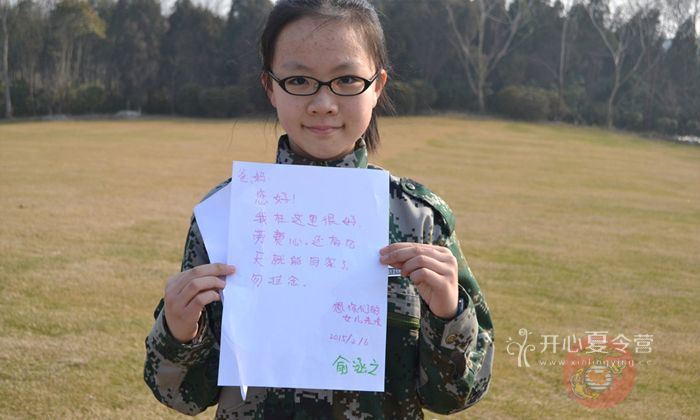 爸妈:
您好!
我在这里很好,
劳费心,还有四
天就能回家了,
勿挂念。
想你们的
女儿
2015/2/6
俞涵之
开心夏令营
www.xinlingying.cc